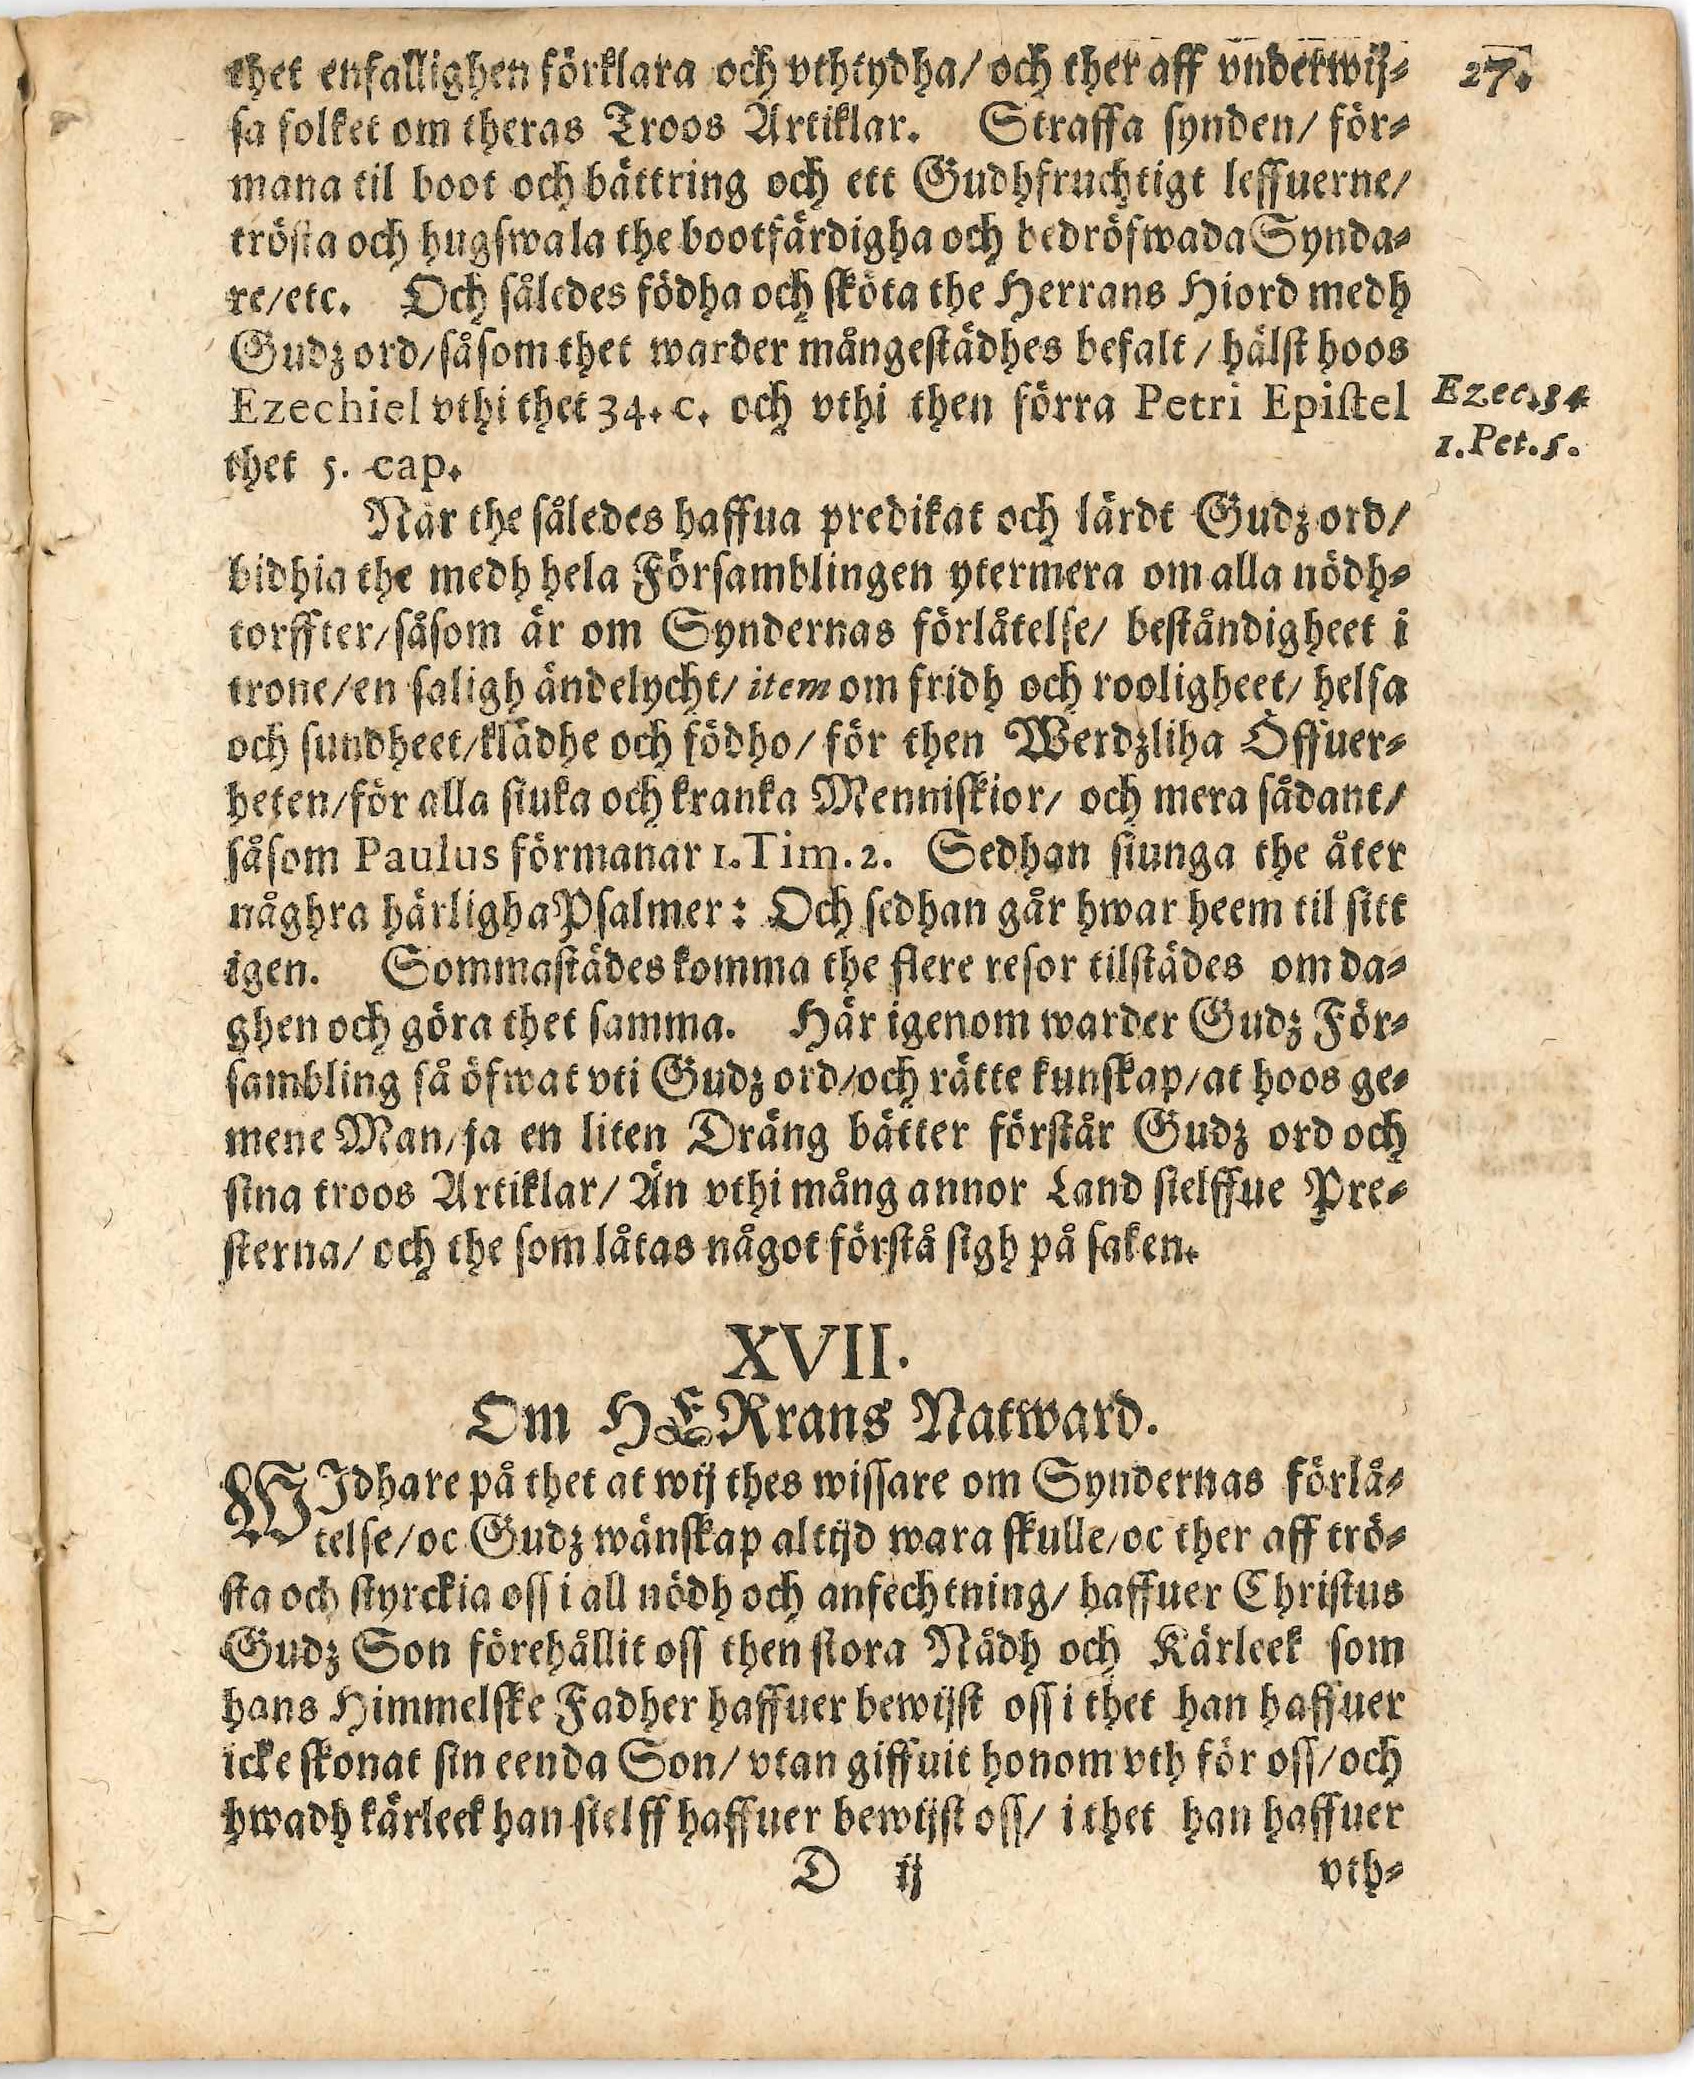 27.
thet enfallighen förklara och vthtydha/ och ther aff vnderwij-
sa folket om theras Troos Artiklar. Straffa synden/ för-
mana til boot och bättring och ett Gudhfruchtigt leffuerne/
trösta och hugswala the bootfärdigha och bedröfwada Synda-
re/etc. Och således födha och sköta the Herrans Hiord medh
Gudz ord/såsom thet warder mångestädhes befalt/ hälst hoos
Ezechiel vthi thet 34. c. och vthi then förra Petri Epistel
thet 5. cap.
Ezec.34
1.Pet.5.
När the således haffua predikat och lärdt Gudz ord/
bidhia the medh hela Församblingen ytermera om alla nödh-
torffter/såsom är om Syndernas förlåtelse/ beståndigheet i
trone/en saligh ändelycht/ item om fridh och rooligheet/ helsa
och sundheet/klädhe och födho/ för then Werdzliha Öffuer-
heten/för alla siuka och kranka Menniskior/ och mera sådant/
såsom Paulus förmanar 1.Tim.2. Sedhan siunga the åter
någhra härligha Psalmer: Och sedhan går hwar heem til sitt
igen. Sommastädes komma the flere resor tilstädes om da-
ghen och göra thet samma. Här igenom warder Gudz För-
sambling så öfwat vti Gudz ord/och rätte kunskap/at hoos ge-
mene Man/ja en liten Dräng bätter förstår Gudz ord och
sina troos Artiklar/ Än vthi mång annor Land sielffue Pre-
sterna/ och the som låtas något förstå sigh på saken.
XVII.
Om HERrans Natward.
WIdhare på thet at wij thes wissare om Syndernas förlå-
telse/oc Gudz wänskap altijd wara skulle/oc ther aff trö-
sta och styrckia oss i all nödh och anfechtning/ haffuer Christus
Gudz Son förehållit oss then stora Nådh och Kärleek som
hans Himmelske Fadher haffuer bewijst oss i thet han haffuer
icke skonat sin eenda Son/ vtan giffuit honom vth för oss/och
hwadh kärleek han sielff haffuer bewijst oss/ i thet han haffuer
D ij vth-